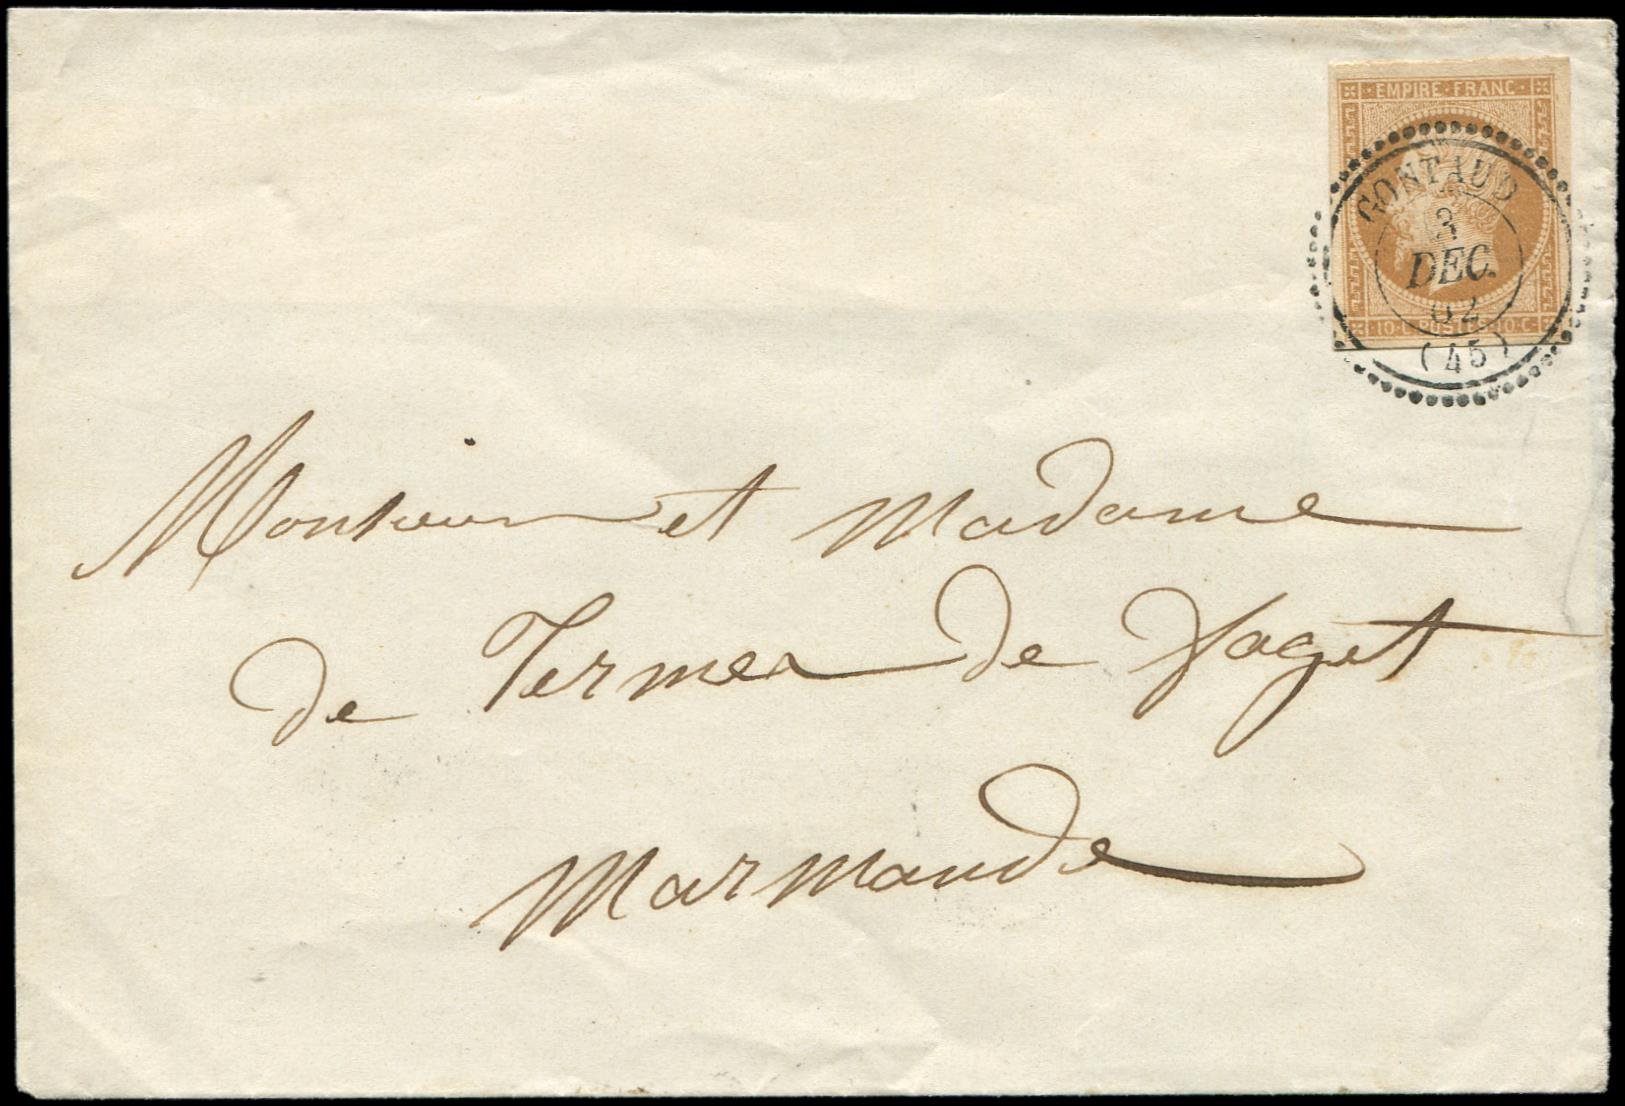 EMPIRE · FRANC ·
GONTAUD
3
DEC.
62
10·C·POSTES·10·C·
(45)
Monsieur et Madame
de Termes de Faget
Marmande